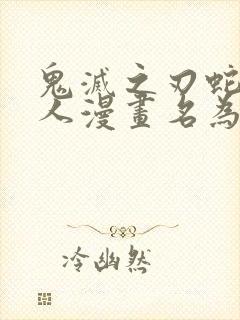 鬼滅之刃蛇
人漫畫名為
冷幽然